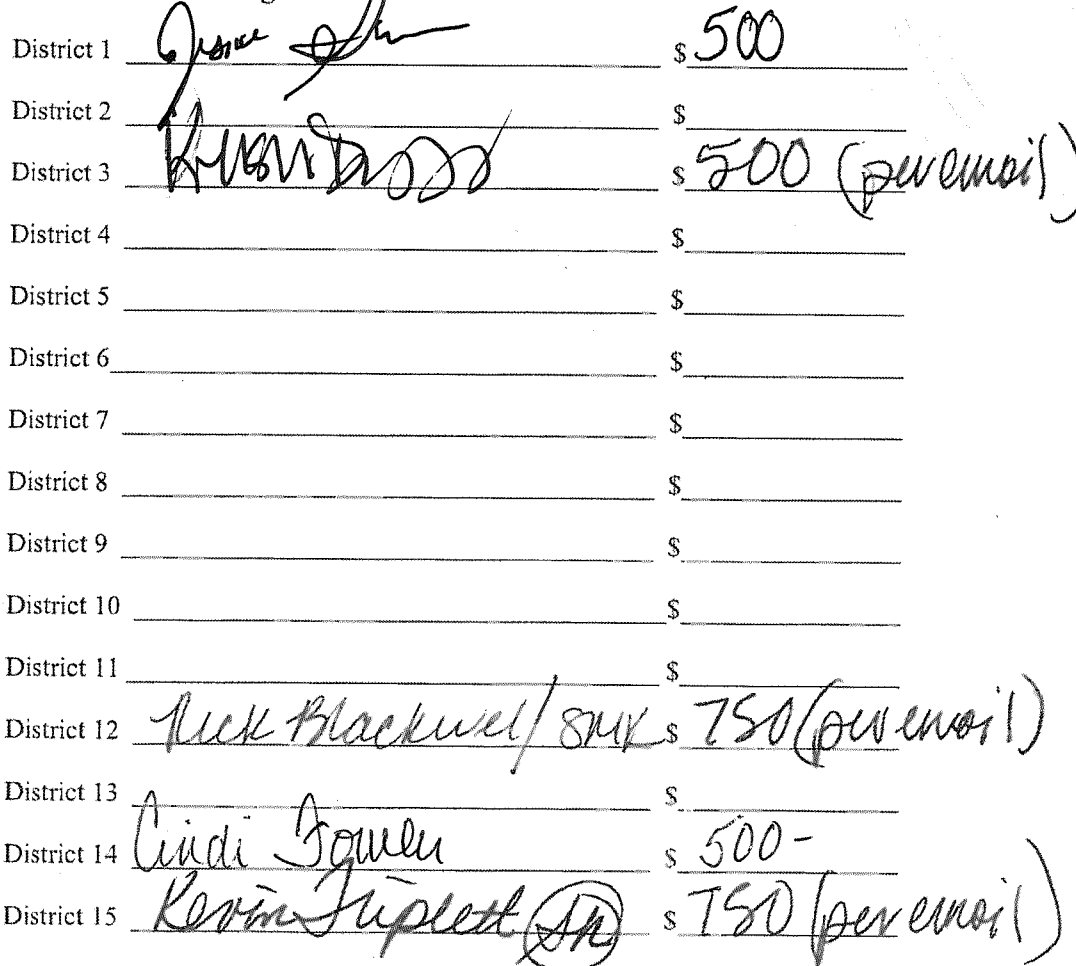 District 1 $ 500
District 2 $
District 3 $ 500 (per email)
District 4 $
District 5 $
District 6 $
District 7 $
District 8 $
District 9 $
District 10 $
District 11 $
District 12 Rick Blackwel/ SMK $ 750 (per email)
District 13 $
District 14 Cindi Fowler $ 500-
District 15 Kevin Triplett $ 750 (per email)